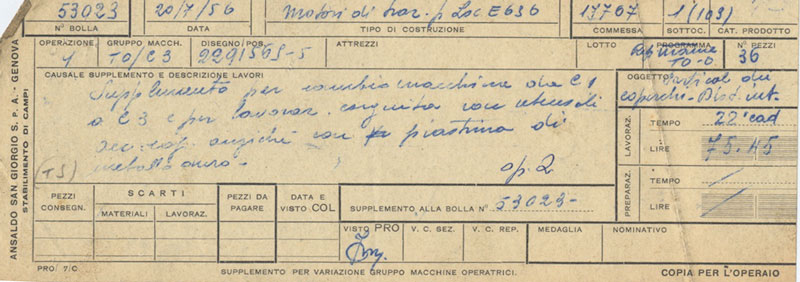 53023 20/7/56 Motori di traz. p Loc E636 13707 1(103)
N° BOLLA DATA TIPO DI COSTRUZIONE COMMESSA SOTTOC. CAT. PRODOTTO
OPERAZIONE GRUPPO MACCH. DISEGNO/POS. ATTREZZI LOTTO PROGRAMMA N° PEZZI
TO/C3 2291565-5 TO-O 36
CAUSALE SUPPLEMENTO E DESCRIZIONE LAVORI OGGETTO
Supplemento per cambio macchina da C1
a C3 e per lavoraz. eseguita con utensili
anziché con piastrina di
metallo duro -
(TS)
op. 2
coperchi - Dist. int.
LAVORAZ. TEMPO 22' cad
LIRE 75.45
PREPARAZ. TEMPO /
LIRE /
PEZZI CONSEGN. SCARTI PEZZI DA PAGARE DATA E VISTO COL
MATERIALI LAVORAZ.
SUPPLEMENTO ALLA BOLLA N° 53023-
VISTO PRO V. C. SEZ. V. C. REP. MEDAGLIA NOMINATIVO
PRO/ 7/C SUPPLEMENTO PER VARIAZIONE GRUPPO MACCHINE OPERATRICI. COPIA PER L'OPERAIO
ANSALDO SAN GIORGIO S. P. A. - GENOVA
STABILIMENTO DI CAMPI